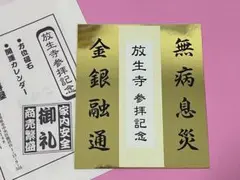 無病息災
放生寺 参拝記念
金銀融通
放生寺 参拝記念
・方位磁石
・開運カレンダー
家内安全
御礼
商売繁盛